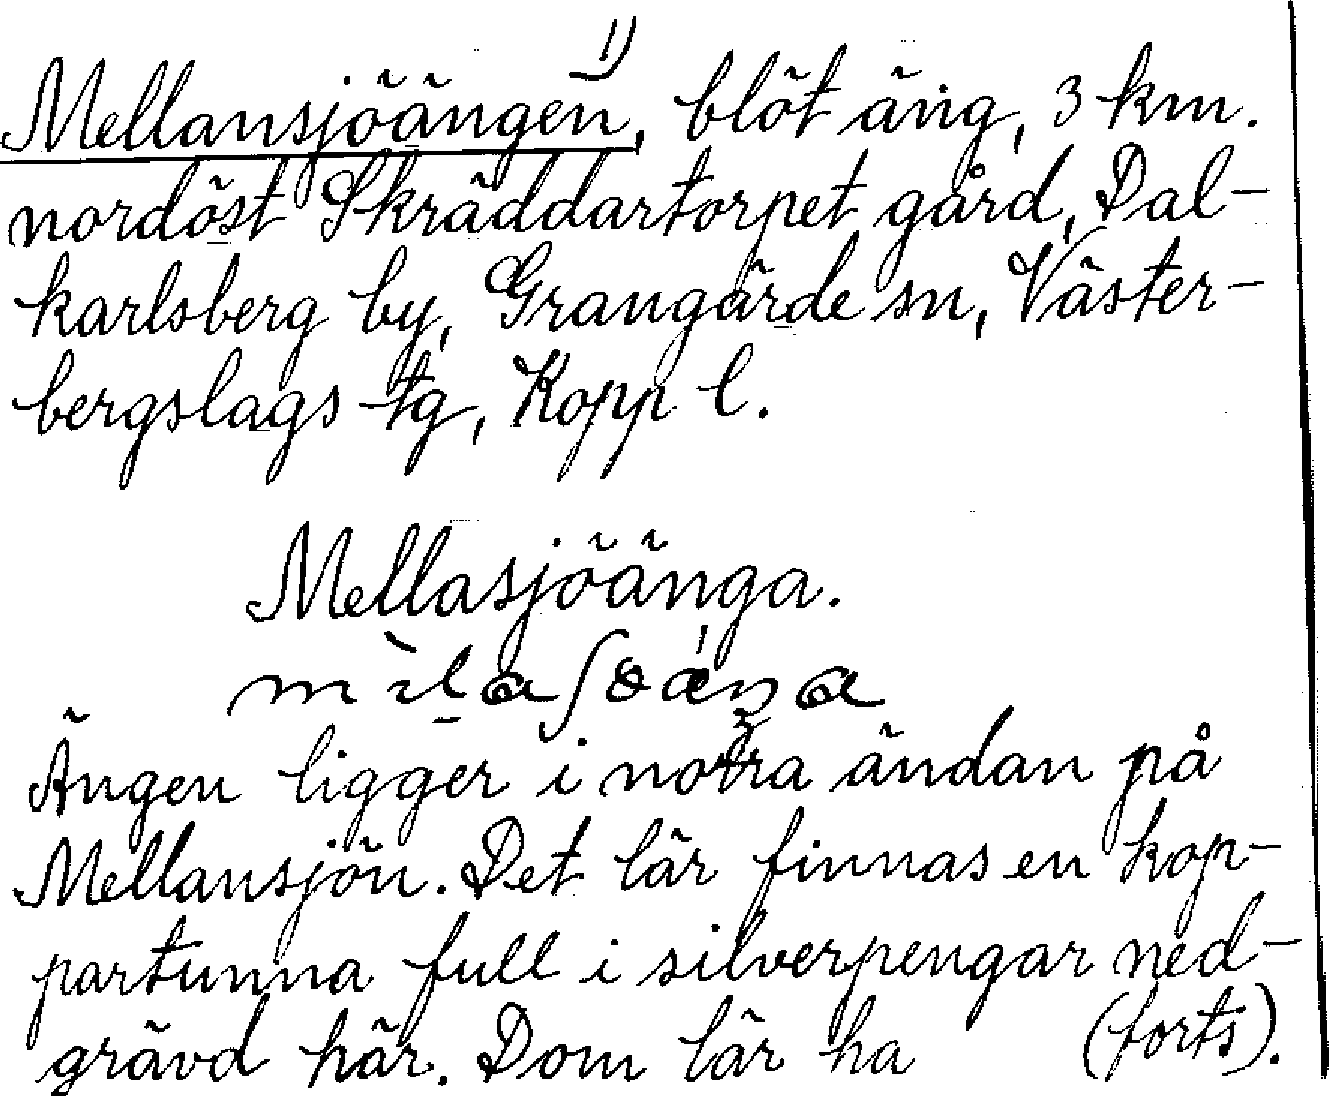 Mellansjöängen, 1) blöt äng, 3 km.
nordöst Skräddartorpet gård, Dal-
karlsberg by, Grangärde sn, Väster-
bergslags tg, Kopp l.
Mellasjöänga.
Ängen ligger i norra ändan på
Mellansjön. Det lär finnas en kop-
partunna full i silverpengar ned-
grävd här. Dom lär ha (forts).